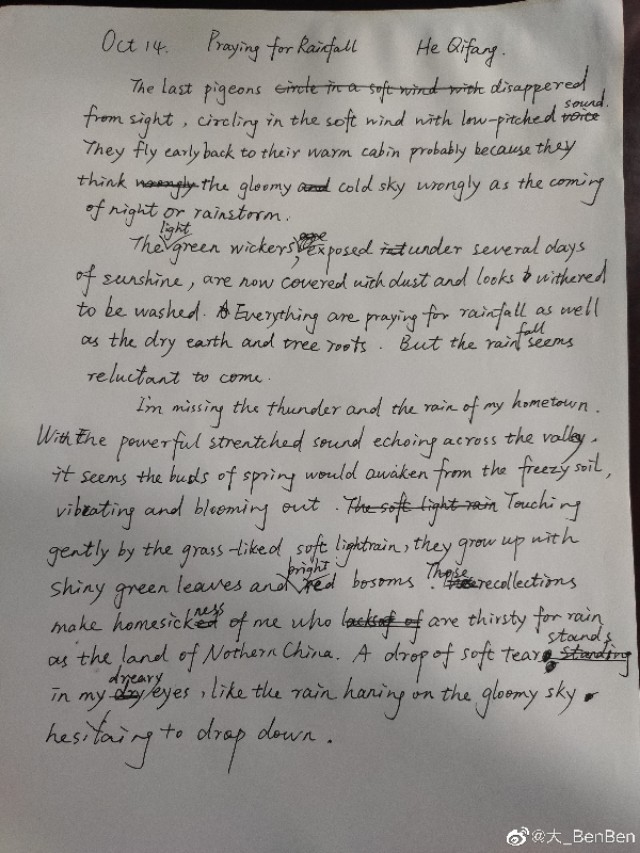 Oct 14. Praying for Rainfall He Qifang.
The last pigeons circle in a soft wind with disappeared
from sight, circling in the soft wind with low-pitched voice sound.
They fly early back to their warm cabin probably because they
think wrongly the gloomy and cold sky wrongly as the coming
of night or rainstorm.
The light green wickers, exposed under several days
of sunshine, are now covered with dust and looks withered
to be washed. Everything are praying for rainfall as well
as the dry earth and tree roots. But the rainfall seems
reluctant to come.
I'm missing the thunder and the rain of my hometown.
With the powerful strentched sound echoing across the valley,
it seems the buds of spring would awaken from the freezy soil,
vibrating and blooming out. The soft light rain Touching
gently by the grass-liked soft lightrain, they grow up with
shiny green leaves and bright red bosoms. Those recollections
make homesickness of me who lacks of are thirsty for rain
as the land of Nothern China. A drop of soft tear standing stands
in my dry dreary eyes, like the rain haning on the gloomy sky
hesitaing to drop down.
@大_BenBen